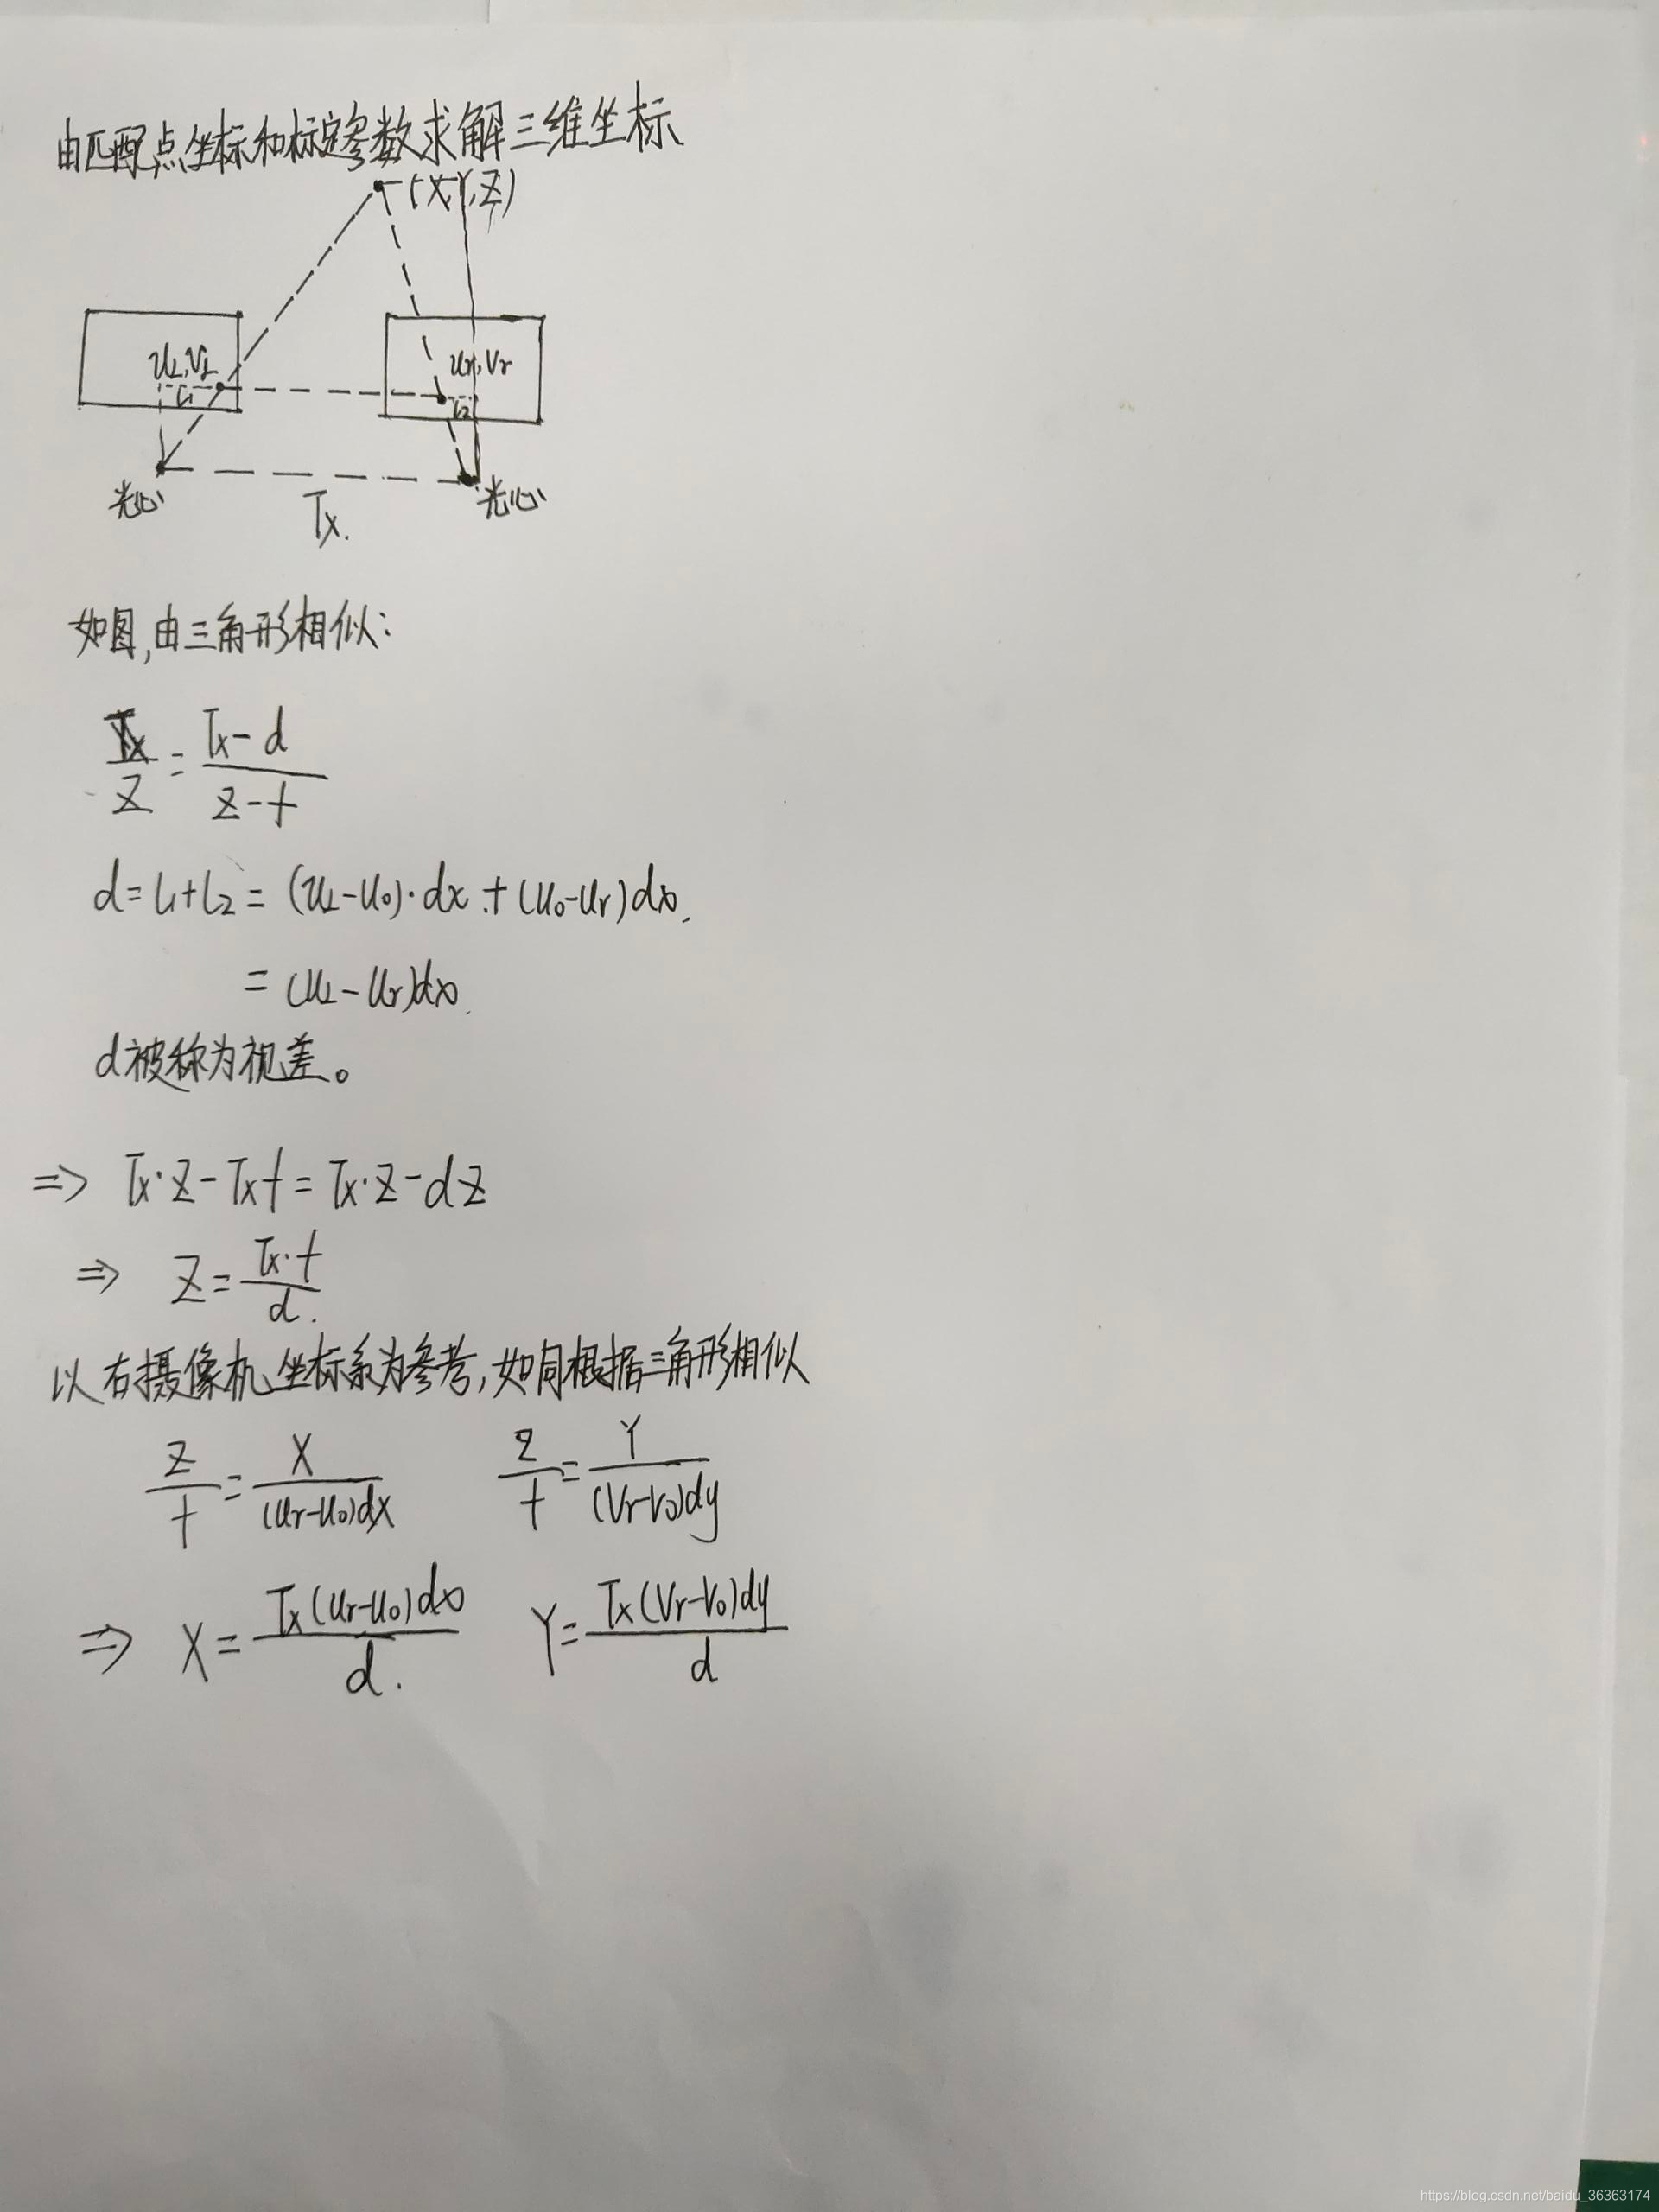 由匹配点坐标和标定参数求解三维坐标
(X,Y,Z)
UL,VL
Ur,Vr
L1
L2
光心
光心
Tx.
如图,由三角形相似:
Tx/Z = (Tx-d)/(Z-f)
d=L1+L2=(UL-U0)·dx+(U0-Ur)dx
=(UL-Ur)dx
d被称为视差。
=> Tx·Z-Txf=Tx·Z-dZ
=> Z=Tx·f/d.
以右摄像机坐标系为参考,如同根据三角形相似
Z/f = X/((Ur-U0)dx) Z/f = Y/((Vr-V0)dy)
=> X=Tx(Ur-U0)dx/d. Y=Tx(Vr-V0)dy/d
https://blog.csdn.net/baidu_36363174